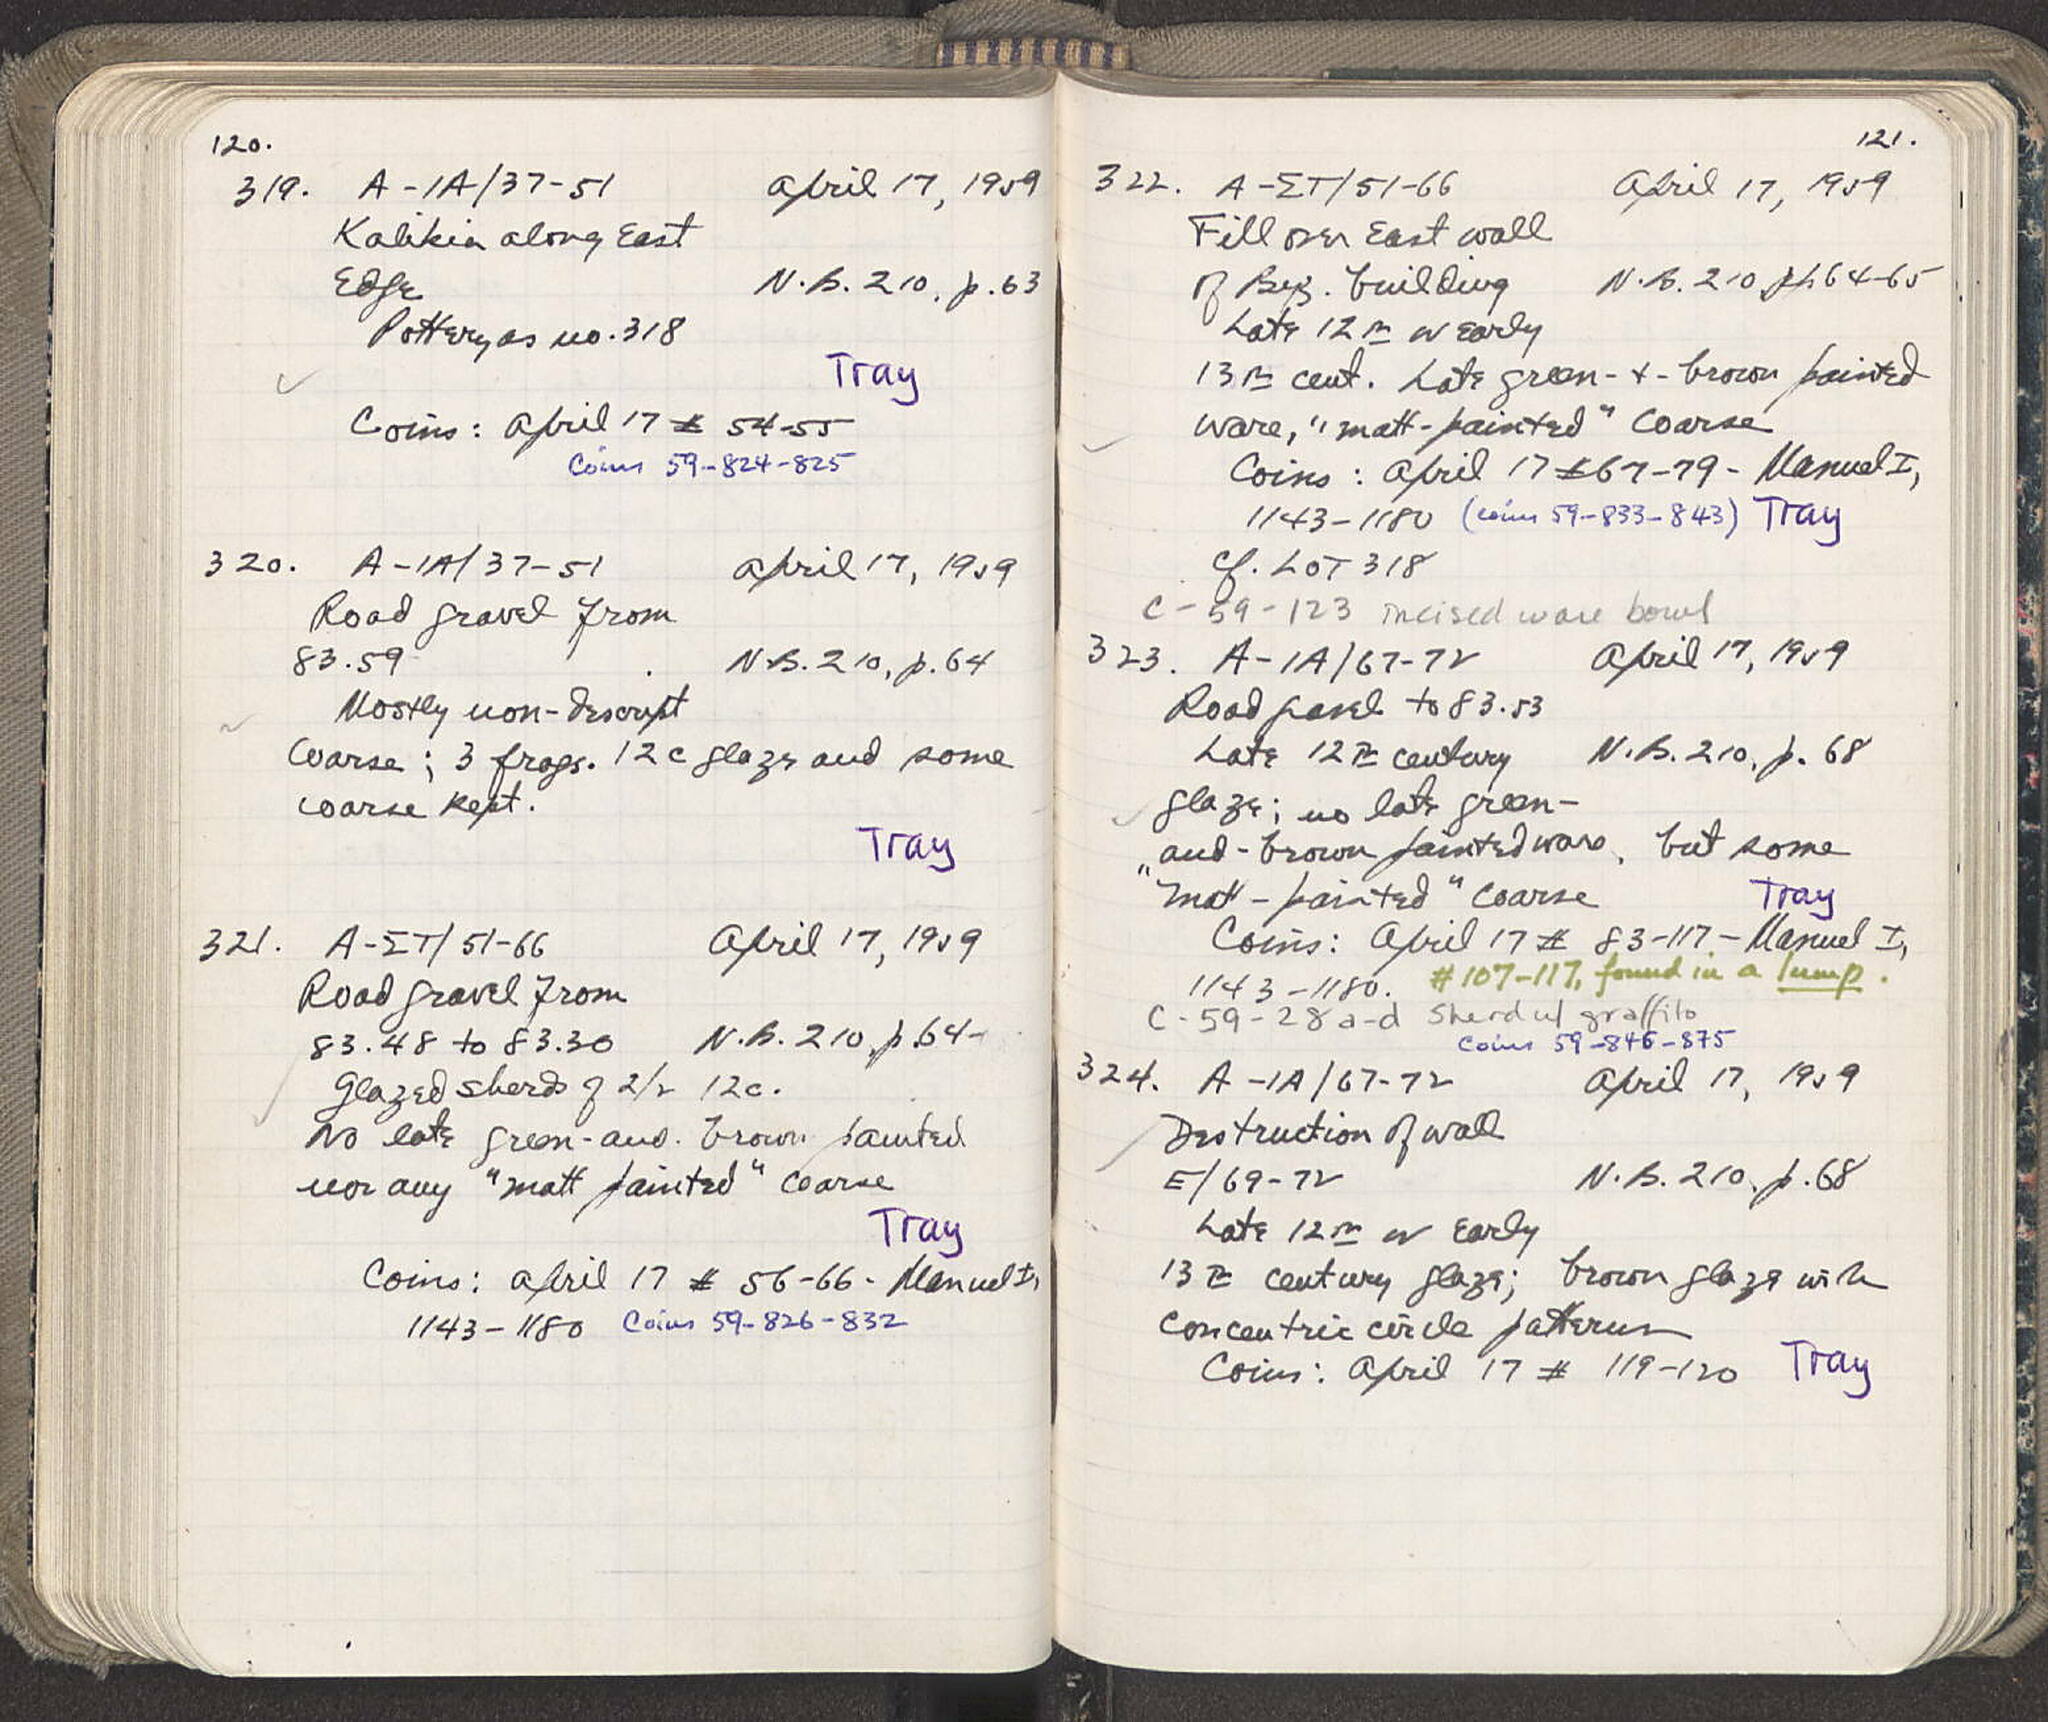 120.
319. A-IA/37-51 April 17, 1959
Kalikia along East
Edge N.B. 210, p. 63
Pottery as no. 318
Tray
Coins: April 17 # 54-55
Coins 59-824-825
320. A-IA/37-51 April 17, 1959
Road gravel from
83.59 N.B. 210, p. 64
Mostly non-descript
coarse; 3 frags. 12c glaze and some
coarse kept.
Tray
321. A-ΣT/51-66 April 17, 1959
Road gravel from
83.48 to 83.30 N.B. 210, p. 64-
Glazed sherds of 2/2 12c.
No late green-and-brown painted
nor any "matt painted" coarse
Tray
Coins: April 17 # 56-66 - Manuel I,
1143-1180 Coins 59-826-832
121.
322. A-ΣT/51-66 April 17, 1959
Fill over East wall
of Byz. building N.B. 210 pp. 64-65
Late 12th or Early
13th cent. Late green-+-brown painted
ware, "matt-painted" coarse
Coins: April 17 # 67-79 - Manuel I,
1143-1180 (coins 59-833-843) Tray
cf. LOT 318
C-59-123 incised ware bowl
323. A-IA/67-72 April 17, 1959
Road gravel to 83.53
Late 12th century N.B. 210, p. 68
glaze; no late green-
and-brown painted ware, but some
"matt-painted" coarse Tray
Coins: April 17 # 83-117 - Manuel I,
1143-1180. #107-117, found in a lump.
C-59-28 a-d Sherd w/ graffito
Coins 59-846-875
324. A-IA/67-72 April 17, 1959
Destruction of wall
E/69-72 N.B. 210, p. 68
Late 12th or Early
13th century glaze; brown glaze with
concentric circle patterns
Coins: April 17 # 119-120 Tray